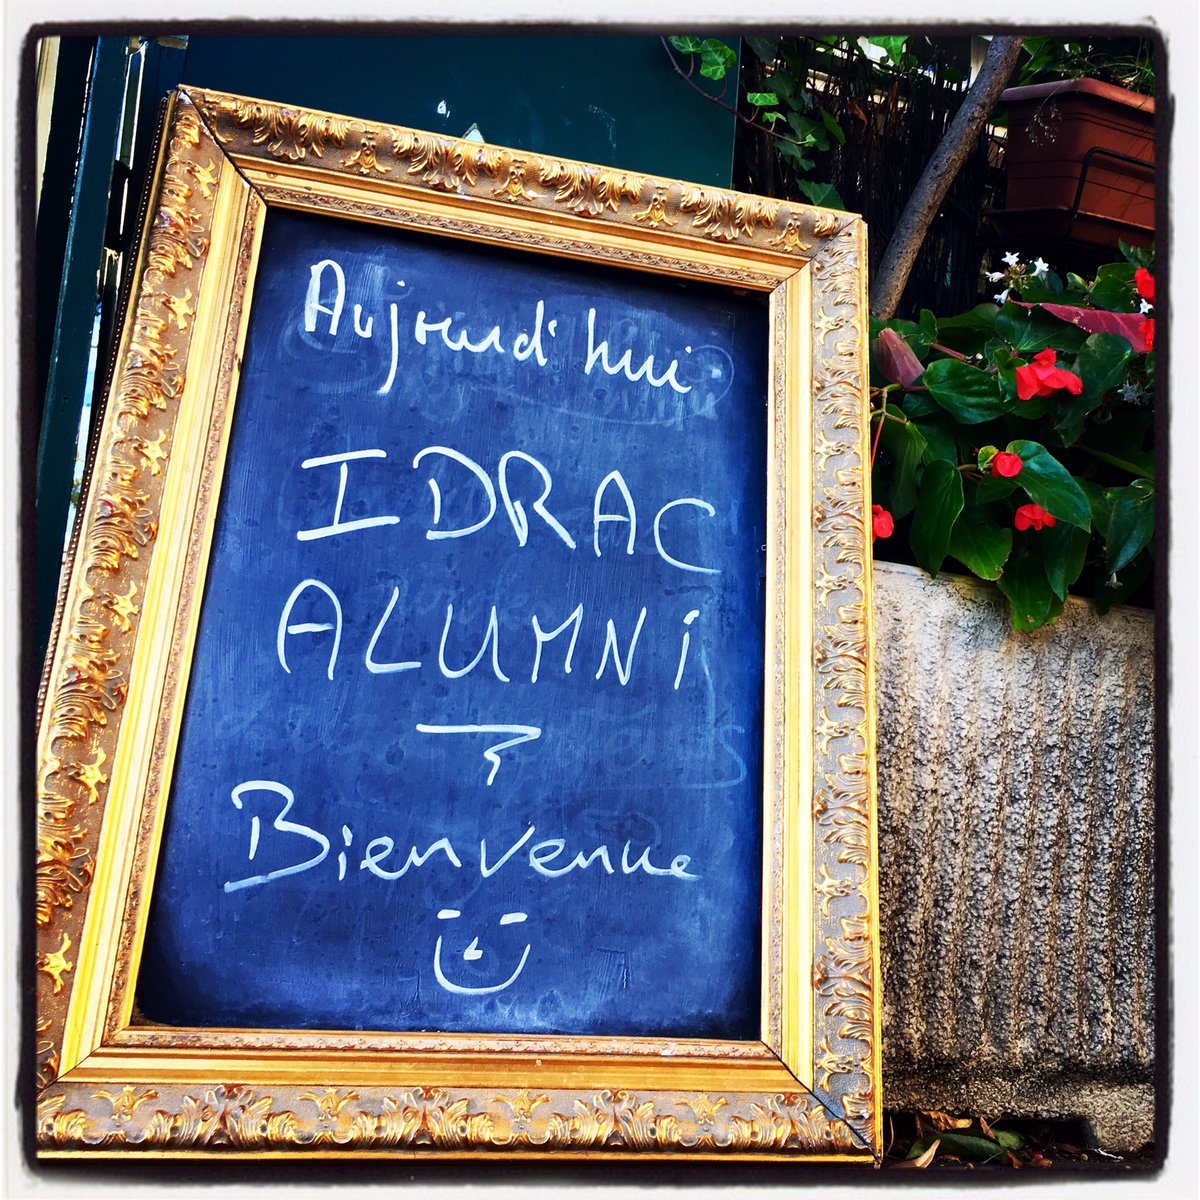 Aujourd'hui
IDRAC
ALUMNi
Bienvenue